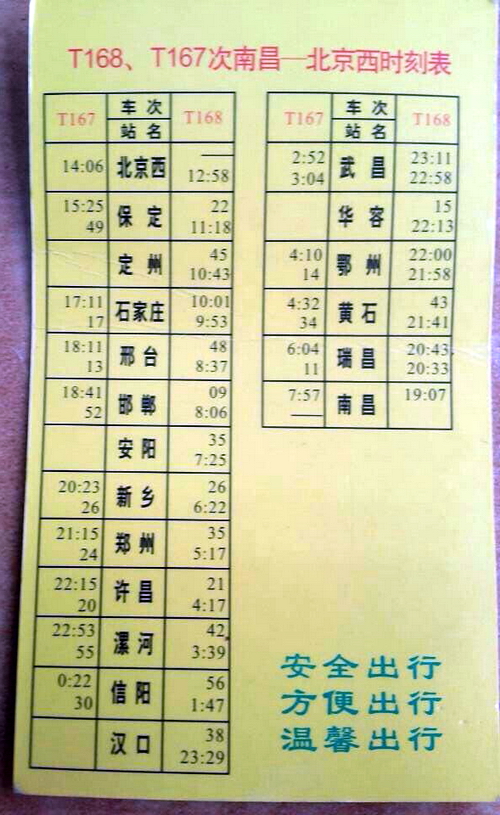 T168、T167次南昌—北京西时刻表
T167 车次 T168
站名
14:06 北京西 ——
12:58
15:25 保定 22
49 11:18
定州 45
10:43
17:11 石家庄 10:01
17 9:53
18:11 邢台 48
13 8:37
18:41 邯郸 09
52 8:06
安阳 35
7:25
20:23 新乡 26
26 6:22
21:15 郑州 35
24 5:17
22:15 许昌 21
20 4:17
22:53 漯河 42
55 3:39
0:22 信阳 56
30 1:47
汉口 38
23:29
T167 车次 T168
站名
2:52 武昌 23:11
3:04 22:58
华容 15
22:13
4:10 鄂州 22:00
14 21:58
4:32 黄石 43
34 21:41
6:04 瑞昌 20:43
11 20:33
7:57 南昌 19:07
——
安全出行
方便出行
温馨出行